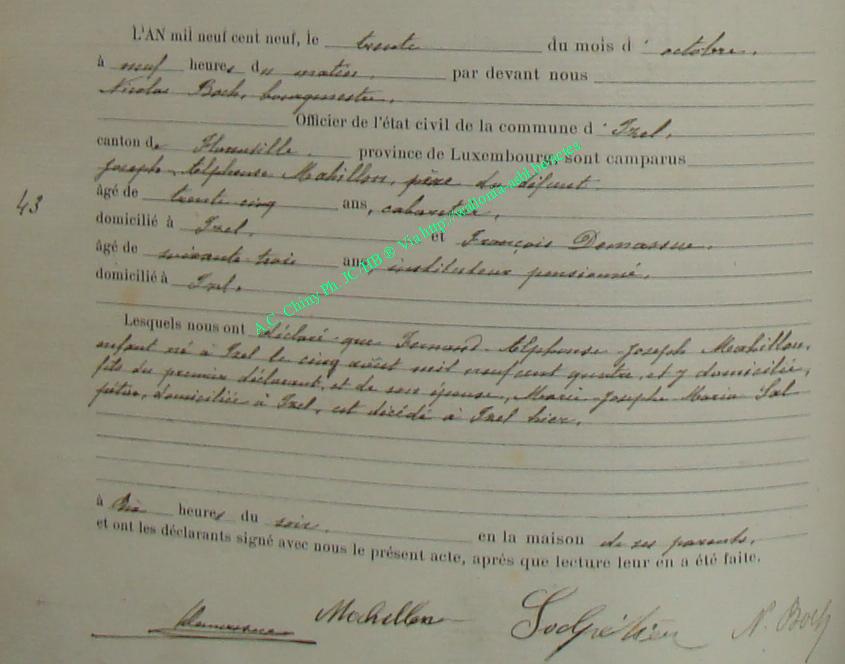 L'AN mil neuf cent neuf, le trente du mois d'octobre,
à neuf heures du matin, par devant nous
Nicolas Boch, bourgmestre,
Officier de l'état civil de la commune d'Izel,
canton de Florenville, province de Luxembourg, sont comparus
Joseph Alphonse Mahillon, père du défunt
43
âgé de trente cinq ans, cabaretier,
domicilié à Izel, et François Demassue,
âgé de soixante trois ans, instituteur pensionné,
domicilié à Izel.
Lesquels nous ont déclaré que Fernand Alphonse Joseph Mahillon,
enfant né à Izel le cinq août mil neuf cent quatre, et y domicilié,
fils du premier déclarant, et de son épouse, Marie Josephe Maria Sal
pêtier, domiciliée à Izel, est décédé à Izel hier,
à dix heures du soir, en la maison de ses parents,
et ont les déclarants signé avec nous le présent acte, après que lecture leur en a été faite.
Mahillon N. Boch
A.C. Chiny Ph. JC/HB ® Via http://wallonia-asbl.be/acies